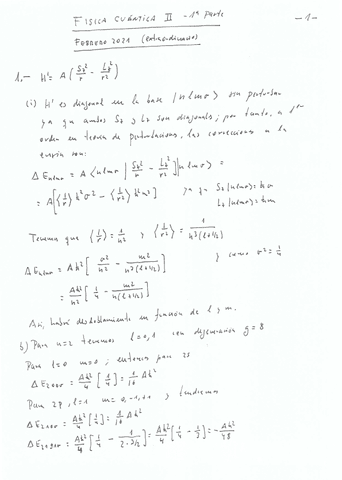 FISICA CUÁNTICA II - 1ª parte
- 1 -
FEBRERO 2021 (extraordinario)
1.- H' = A (S_z²/r - L_z²/r²)
(i) H' es diagonal en la base |nlmσ> sin perturbar
ya que ambos S_z y L_z son diagonales; por tanto, a 1er
orden en teoría de perturbaciones, las correcciones a la
energía son:
ΔE_nlmσ = A <nlmσ| S_z²/r - L_z²/r² |nlmσ> =
= A [<1/r> ħ²σ² - <1/r²> ħ²m²] ya que S_z|nlmσ> = ħσ
L_z|nlmσ> = ħm
Tenemos que <1/r> = 1/n² y <1/r²> = 1/(n³(l+1/2))
ΔE_nlmσ = Aħ² [σ²/n² - m²/(n³(l+1/2))] y como σ² = 1/4
= Aħ²/n² [1/4 - m²/(n(l+1/2))]
Así, habrá desdoblamiento en función de l y m.
b) Para n=2 tenemos l=0,1 con degeneración g=8
Para l=0 m=0; entonces para 2s
ΔE_200σ = Aħ²/4 [1/4] = 1/16 Aħ²
Para 2p, l=1 m=0,-1,+1 y tendremos
ΔE_210σ = Aħ²/4 [1/4] = 1/16 Aħ²
= Aħ²/4 [1/4 - 1/(2·3/2)] = Aħ²/4 [1/4 - 1/3] = -Aħ²/48